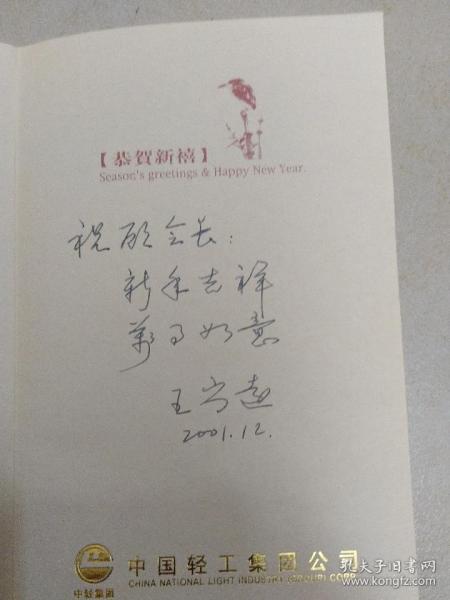 【恭賀新禧】
Season's greetings & Happy New Year.
祝顾会长：
新年吉祥
萬事如意
王尚
2001.12.
中轻集团
中国轻工集团公司
CHINA NATIONAL LIGHT INDUSTRY (GROUP) CORP.
孔夫子旧书网